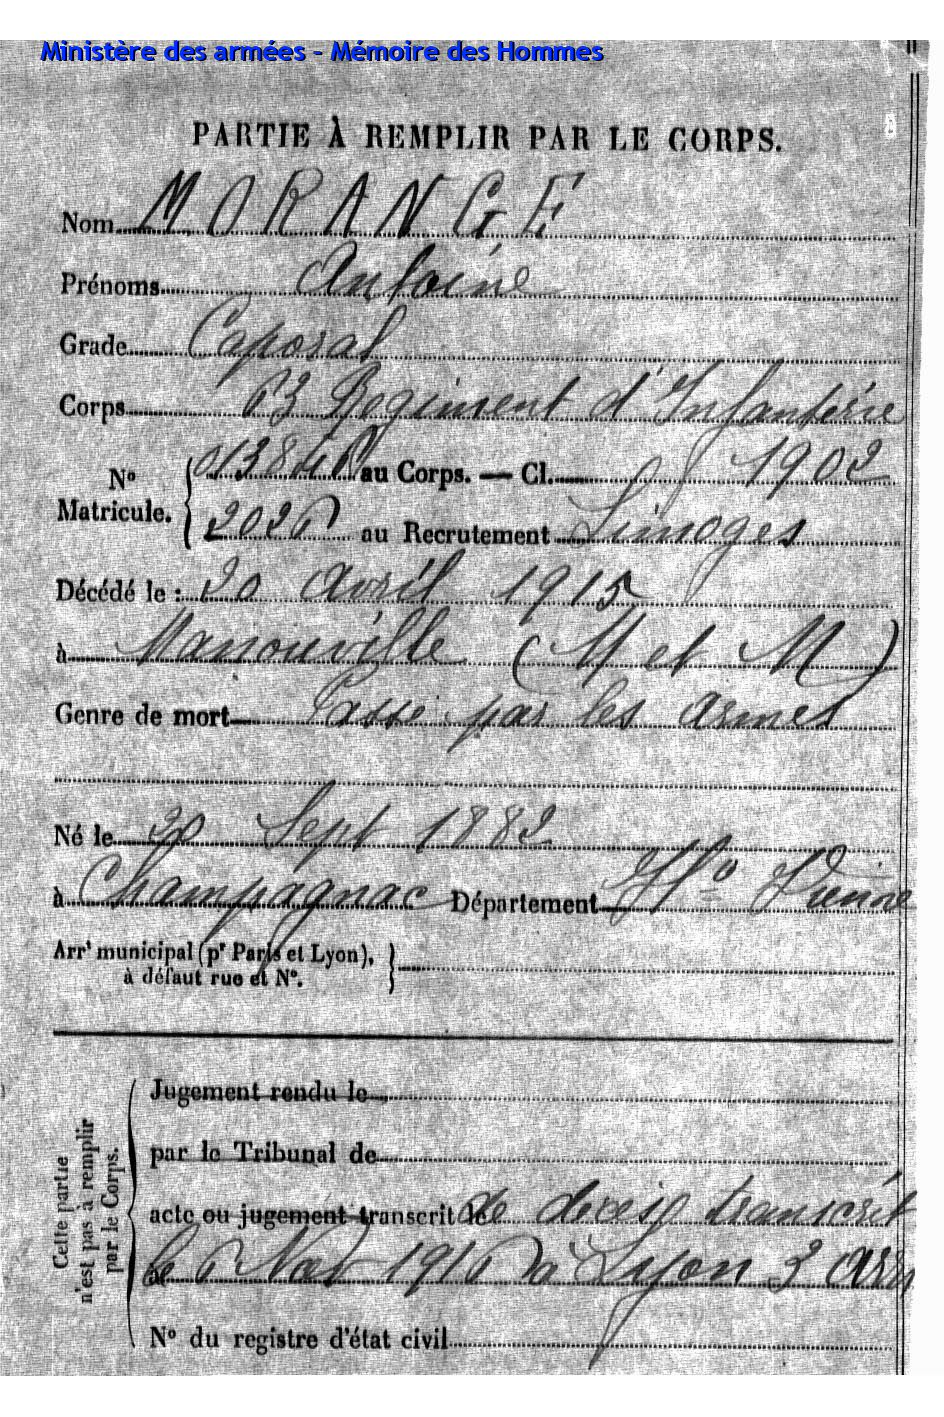 Ministère des armées - Mémoire des Hommes
PARTIE À REMPLIR PAR LE CORPS.
Nom MORANGE
Prénoms Antoine
Grade Caporal
Corps 63 Regiment d'Infanterie
No Matricule. { 013846 au Corps. — Cl. 1902
2026 au Recrutement Limoges
Décédé le : 20 avril 1915
à Manonville (M et M)
Genre de mort Passé par les armes
Né le 20 Sept 1882
à Champagnac Département Hte Vienne
Arrt municipal (pr Paris et Lyon),
à défaut rue et No.
Cette partie
n'est pas à remplir
par le Corps.
Jugement rendu le
par le Tribunal de
acte ou jugement transcrit le de décès transcrit
le 6 1916 à Lyon 3 arr
No du registre d'état civil